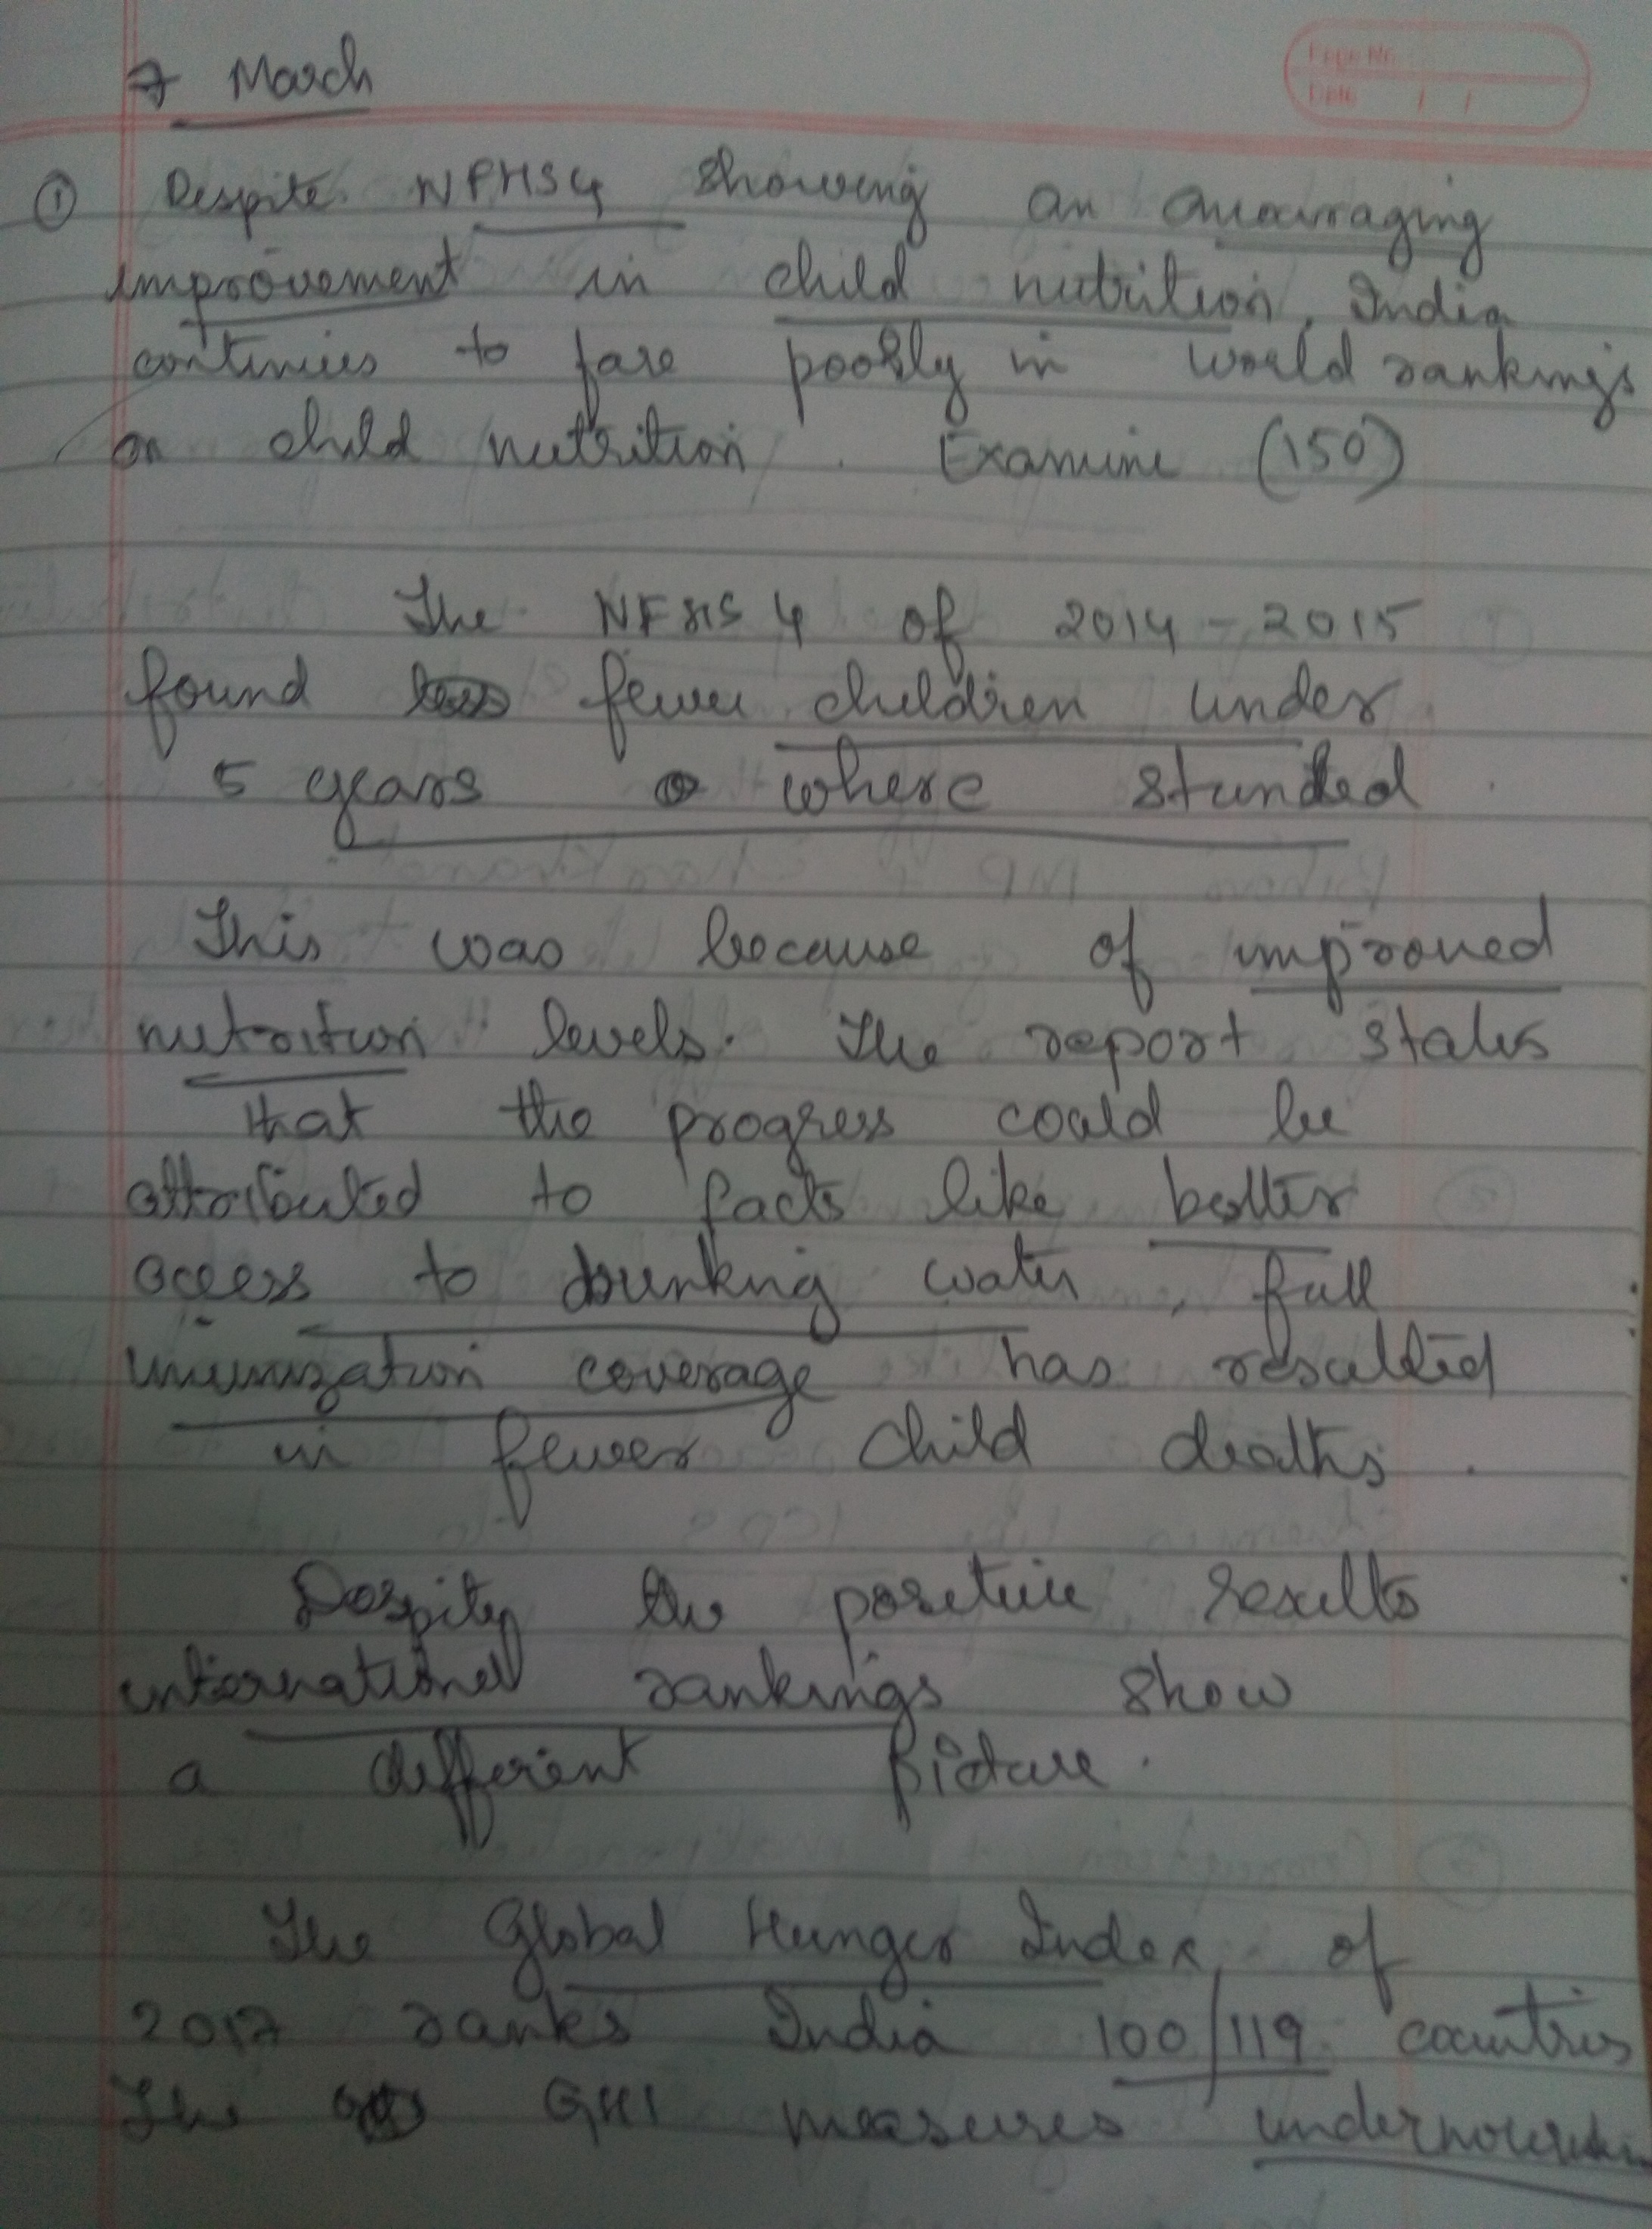 7 March
Page No.
Date / /
① Despite NFHS4 showing an encouraging
improvement in child nutrition, India
continues to fare poorly in world rankings
on child nutrition. Examine (150)
The NFHS 4 of 2014-2015
found fewer children under
5 years where stunded.
This was because of improved
nutrition levels. The report states
that the progress could be
attributed to facts like better
access to drinking water, full
immunization coverage has resulted
in fewer child deaths.
Despite the positive results
international rankings show
a different picture.
The Global Hunger Index of
2017 ranks India 100/119 countries
The GHI measures